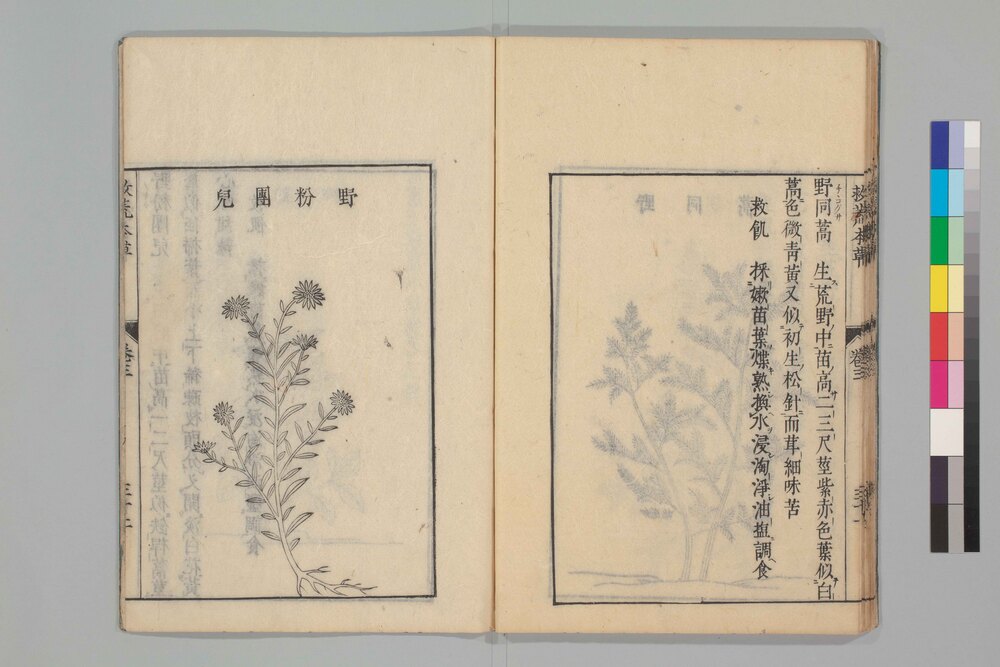 救荒本草
卷三
三十一
野同蒿 生荒野中苗高二三尺莖紫赤色葉似白
蒿色微青黃又似初生松針而茸細味苦
救飢 採嫩苗葉煠熟換水浸淘淨油塩調食
野粉團兒
救荒本草
卷三
三十二